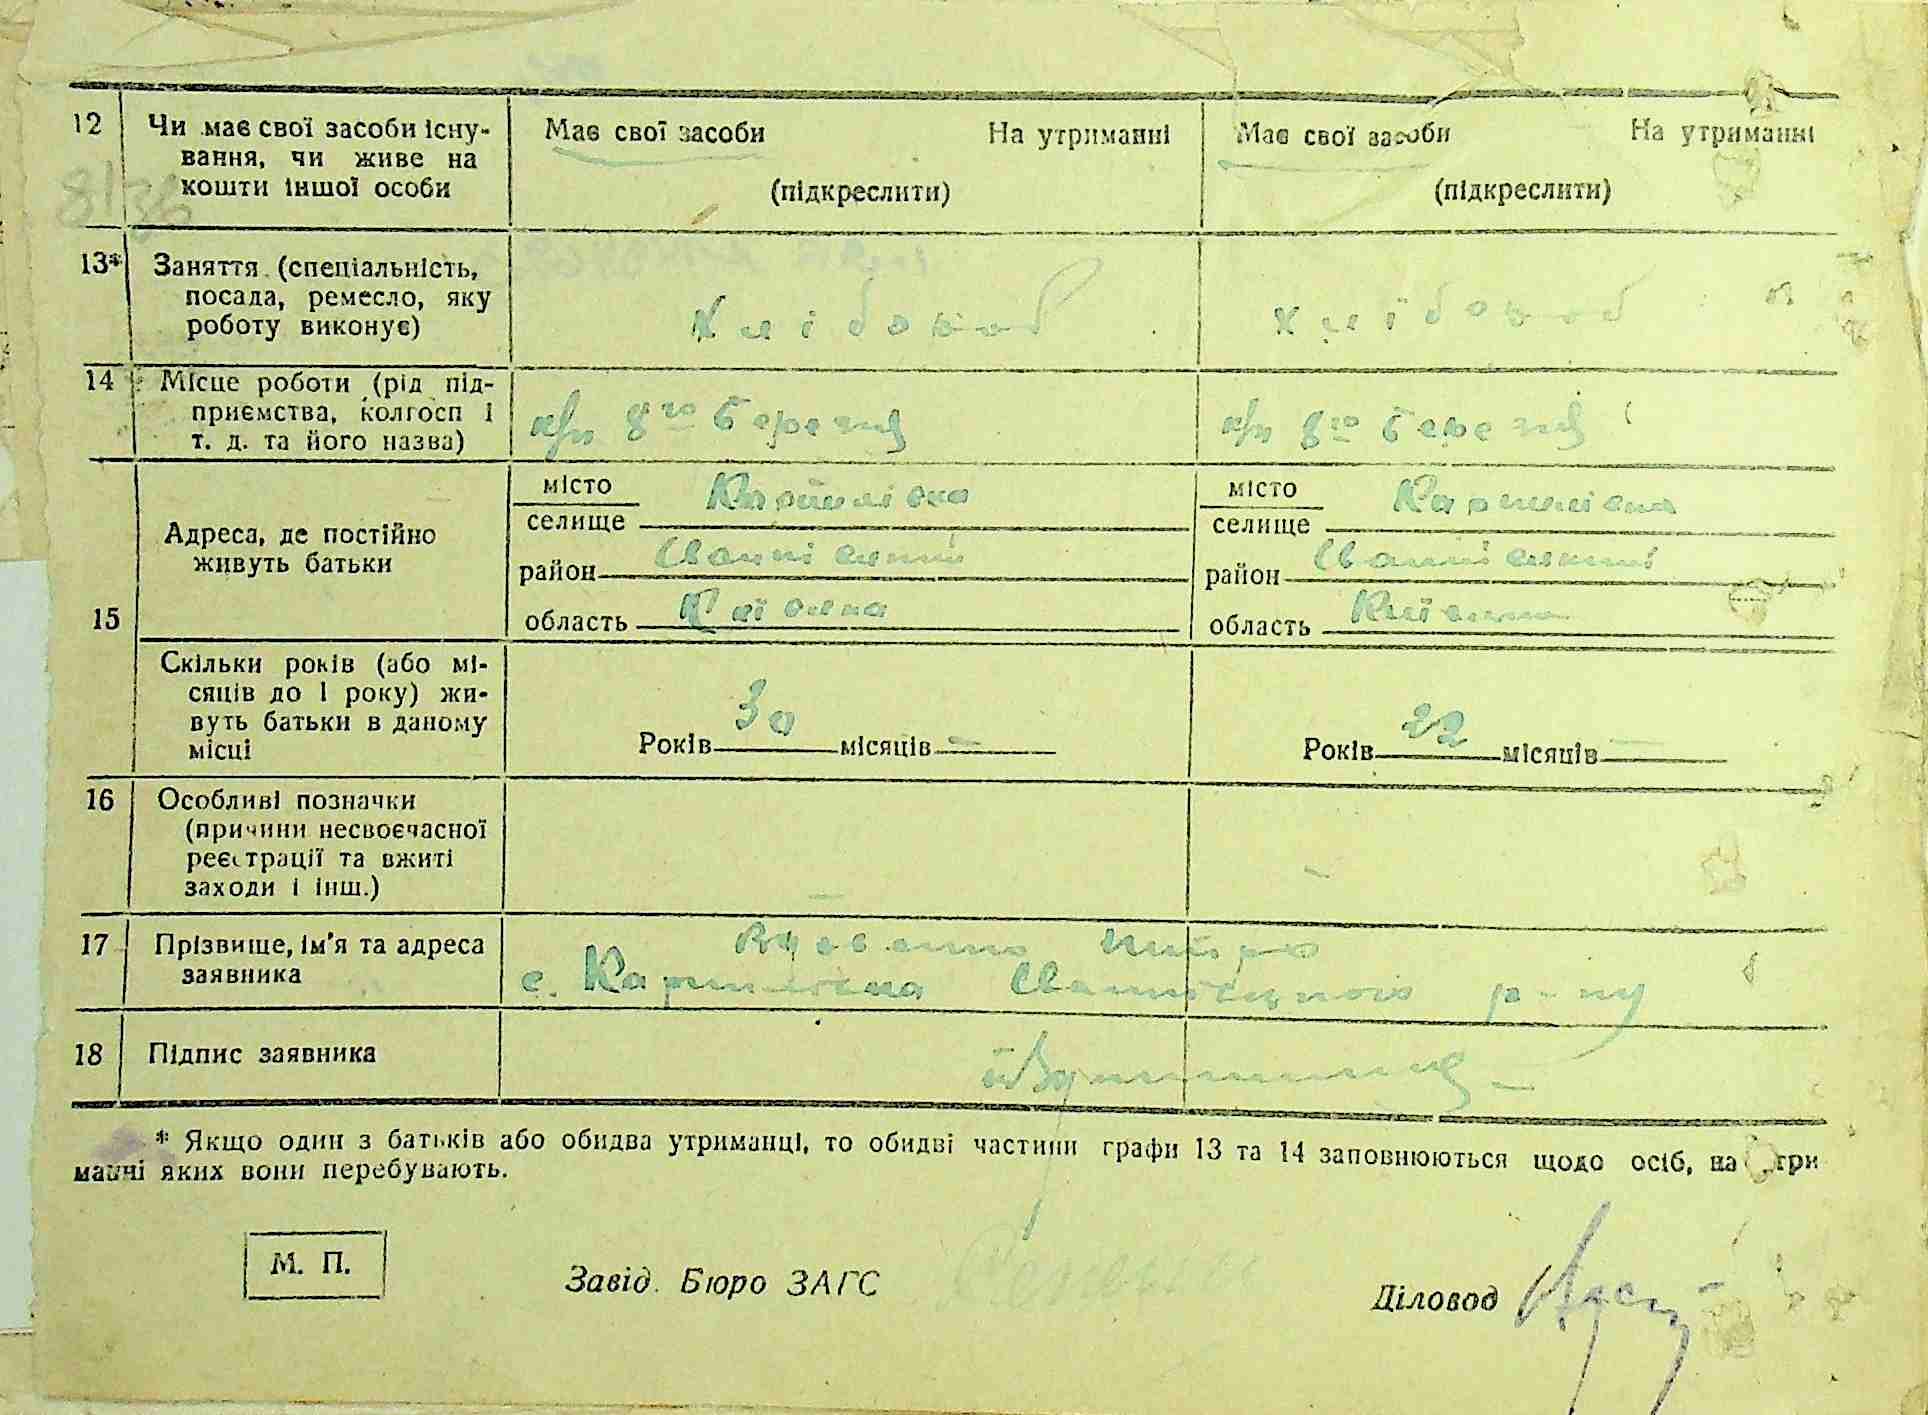 12 Чи має свої засоби існу- Має свої засоби На утриманні Має свої засоби На утриманні
вання, чи живе на
кошти іншої особи (підкреслити) (підкреслити)
8/36
13* Заняття (спеціальність,
посада, ремесло, яку хлібороб хлібороб
роботу виконує)
14 Місце роботи (рід під-
приємства, колгосп і 8го Березня 8го Березня
т. д. та його назва)
місто Карпилівка місто Карпилівка
селище селище
Адреса, де постійно
живуть батьки
район район
15 область Київська область Київська
Скільки років (або мі-
сяців до 1 року) жи-
вуть батьки в даному
місці Років 30 місяців — Років 22 місяців —
16 Особливі позначки
(причини несвоєчасної
реєстрації та вжиті
заходи і інш.) — —
17 Прізвище, ім'я та адреса
заявника с. Карпилівка р-ну
18 Підпис заявника
* Якщо один з батьків або обидва утриманці, то обидві частини графи 13 та 14 заповнюються щодо осіб, на утри
манні яких вони перебувають.
М. П. Завід. Бюро ЗАГС Діловод